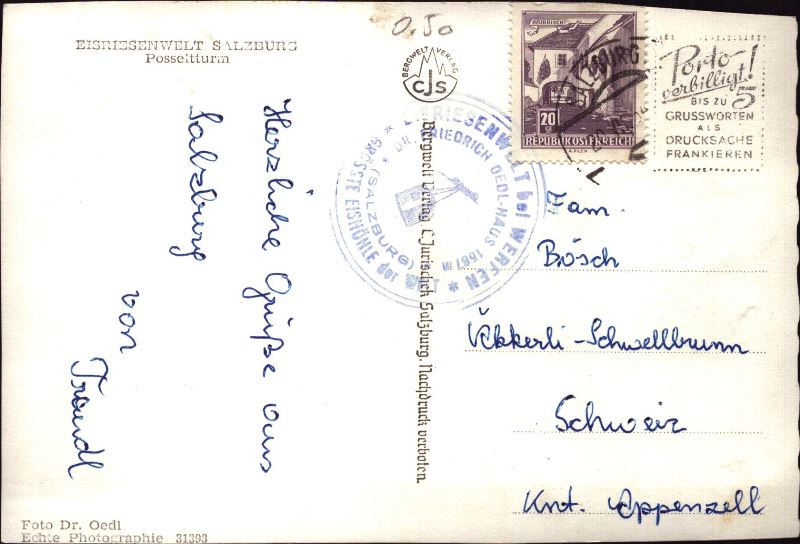 EISRIESENWELT SALZBURG
Posseltturm
Herzliche Grüße aus
Salzburg
von
Traudl
Foto Dr. Oedl
Echte Photographie 31393
0.50
BERGWELT VERLAG
CJS
Bergwelt Verlag C. Jurischek Salzburg. Nachdruck verboten.
* EISRIESENWELT bei WERFEN *
GRÖSSTE EISHÖHLE der WELT
* DR. FRIEDRICH OEDL-HAUS 1567 m
(SALZBURG)
MÖRBISCH
20 g
REPUBLIK ÖSTERREICH
SALZBURG
2
Porto-
verbilligt!
BIS ZU 5
GRUSSWORTEN
ALS
DRUCKSACHE
FRANKIEREN
Fam.
Bösch
Schwellbrunn
Schweiz
Knt. Appenzell